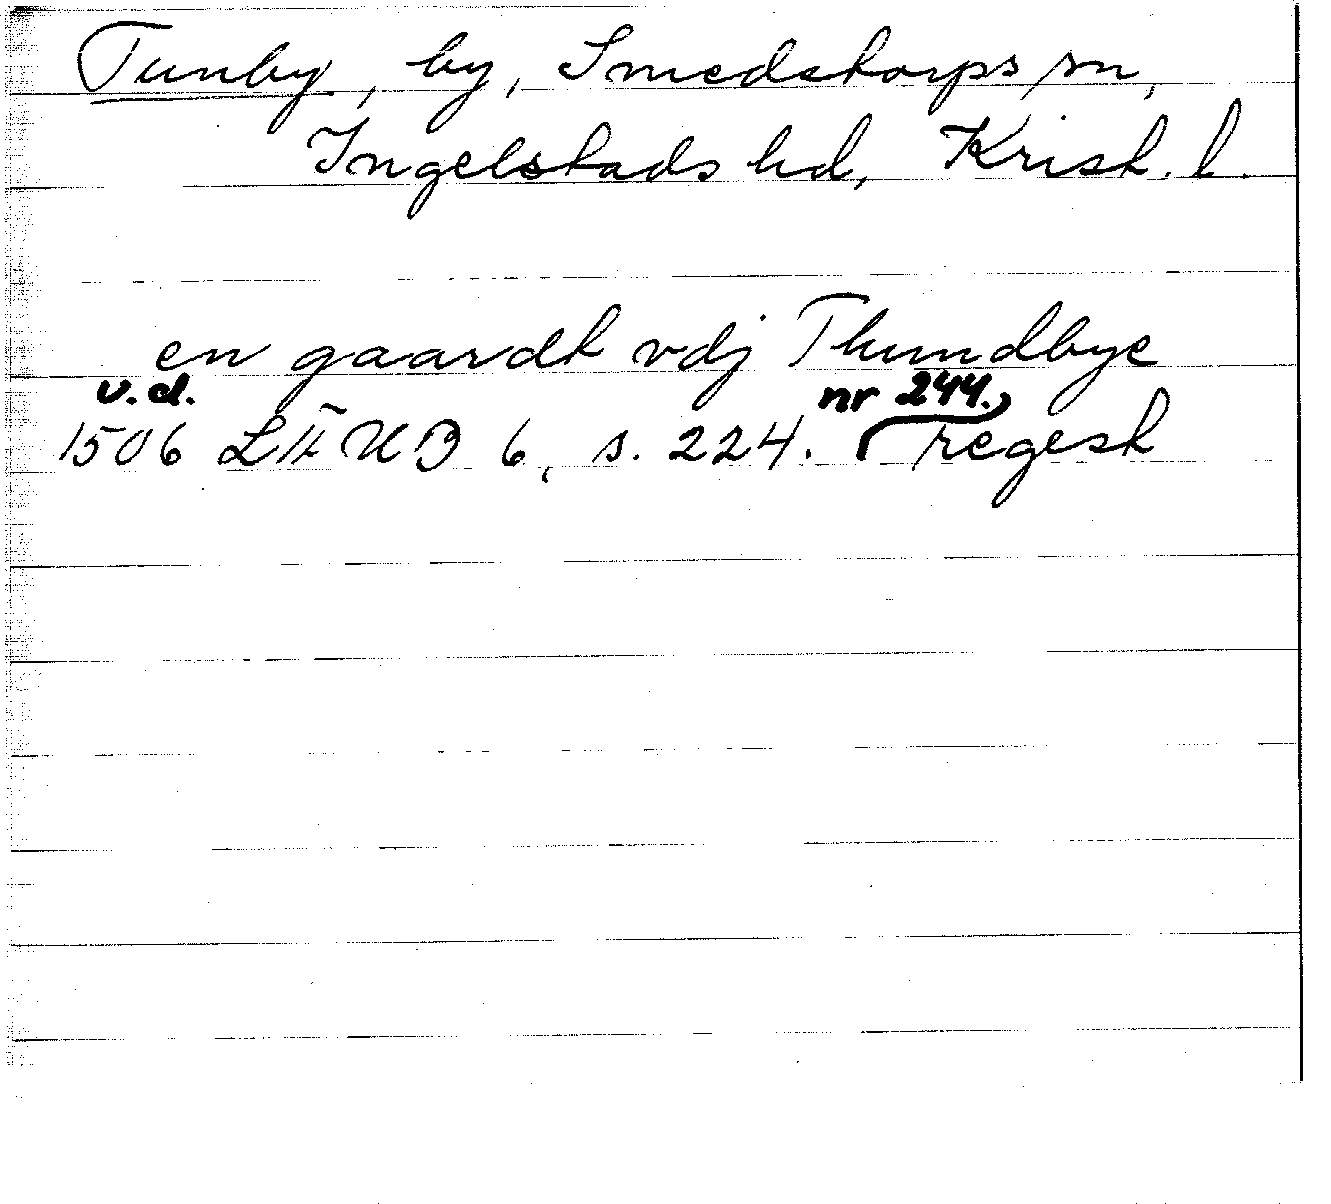 Tunby, by, Smedstorps sn,
Ingelstads hd, Krist. l.
en gaardt vdj Thundbye
u.d. nr 244.
1506 LÄUB 6, s. 224. regest